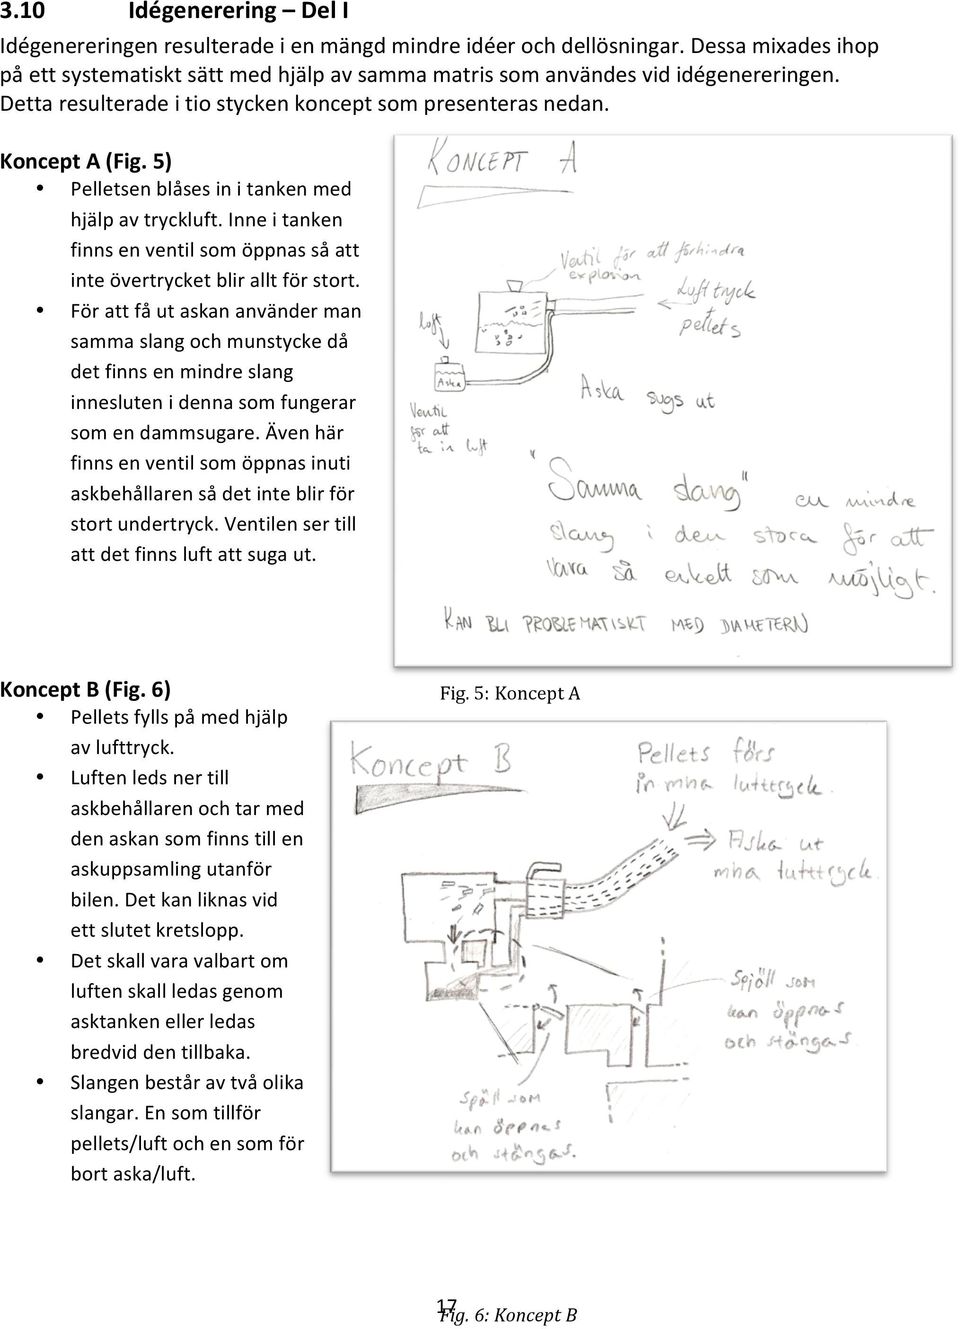 3.10 Idégenerering – Del I
Idégenereringen resulterade i en mängd mindre idéer och dellösningar. Dessa mixades ihop
på ett systematiskt sätt med hjälp av samma matris som användes vid idégenereringen.
Detta resulterade i tio stycken koncept som presenteras nedan.
Koncept A (Fig. 5)
• Pelletsen blåses in i tanken med
hjälp av tryckluft. Inne i tanken
finns en ventil som öppnas så att
inte övertrycket blir allt för stort.
• För att få ut askan använder man
samma slang och munstycke då
det finns en mindre slang
innesluten i denna som fungerar
som en dammsugare. Även här
finns en ventil som öppnas inuti
askbehållaren så det inte blir för
stort undertryck. Ventilen ser till
att det finns luft att suga ut.
KONCEPT A
Ventil för att förhindra
explosion
Lufttryck
pellets
luft
Aska
Aska sugs ut
Ventil
för att
ta in luft
"Samma slang" en mindre
slang i den stora för att
vara så enkelt som möjligt.
KAN BLI PROBLEMATISKT MED DIAMETERN
Fig. 5: Koncept A
Koncept B (Fig. 6)
• Pellets fylls på med hjälp
av lufttryck.
• Luften leds ner till
askbehållaren och tar med
den askan som finns till en
askuppsamling utanför
bilen. Det kan liknas vid
ett slutet kretslopp.
• Det skall vara valbart om
luften skall ledas genom
asktanken eller ledas
bredvid den tillbaka.
• Slangen består av två olika
slangar. En som tillför
pellets/luft och en som för
bort aska/luft.
Koncept B
Pellets förs
in mha lufttryck.
Aska ut
mha lufttryck.
Spjäll som
kan öppnas
och stängas
Spjäll som
kan öppnas
och stängas.
17
Fig. 6: Koncept B